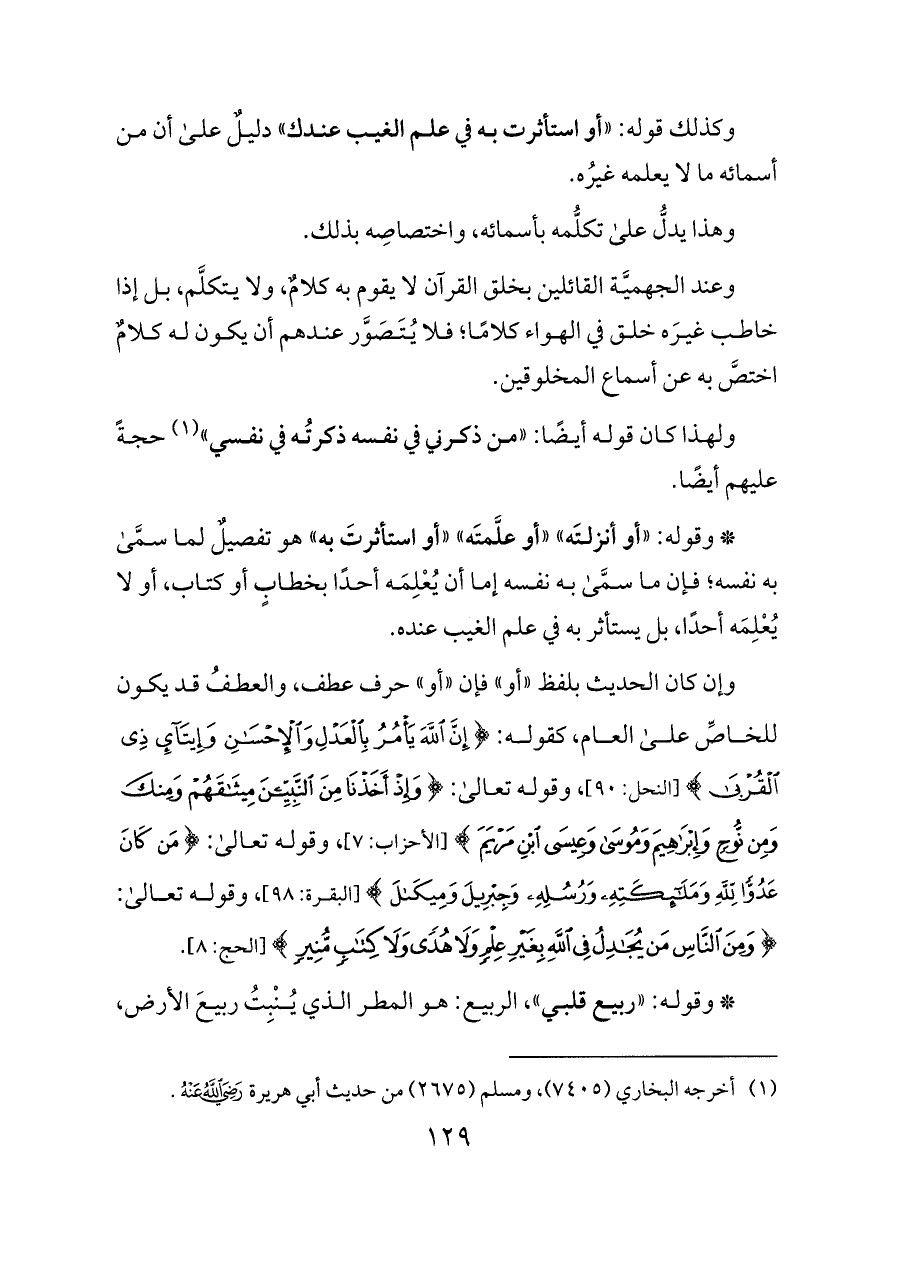 وكذلك قوله: «أو استأثرت به في علم الغيب عندك» دليلٌ علىٰ أن من
أسمائه ما لا يعلمه غيرُه.
وهذا يدلُّ علىٰ تكلُّمه بأسمائه، واختصاصِه بذلك.
وعند الجهميَّة القائلين بخلق القرآن لا يقوم به كلامٌ، ولا يتكلَّم، بل إذا
خاطب غيرَه خلق في الهواء كلامًا؛ فلا يُتَصَوَّر عندهم أن يكون له كلامٌ
اختصَّ به عن أسماع المخلوقين.
ولهذا كان قوله أيضًا: «من ذكرني في نفسه ذكرتُه في نفسي»(١) حجةً
عليهم أيضًا.
* وقوله: «أو أنزلتَه» «أو علَّمتَه» «أو استأثرتَ به» هو تفصيلٌ لما سمَّىٰ
به نفسه؛ فإن ما سمَّىٰ به نفسه إما أن يُعْلِمَه أحدًا بخطابٍ أو كتاب، أو لا
يُعْلِمَه أحدًا، بل يستأثر به في علم الغيب عنده.
وإن كان الحديث بلفظ «أو» فإن «أو» حرف عطف، والعطفُ قد يكون
للخاصِّ علىٰ العام، كقوله: ﴿ إِنَّ ٱللَّهَ يَأْمُرُ بِٱلْعَدْلِ وَٱلْإِحْسَٰنِ وَإِيتَآيِ ذِى
ٱلْقُرْبَىٰ ﴾ [النحل: ٩٠]، وقوله تعالىٰ: ﴿ وَإِذْ أَخَذْنَا مِنَ ٱلنَّبِيِّـۧنَ مِيثَٰقَهُمْ وَمِنكَ
وَمِن نُّوحٍ وَإِبْرَٰهِيمَ وَمُوسَىٰ وَعِيسَى ٱبْنِ مَرْيَمَ ﴾ [الأحزاب: ٧]، وقوله تعالىٰ: ﴿ مَن كَانَ
عَدُوًّا لِّلَّهِ وَمَلَٰٓئِكَتِهِۦ وَرُسُلِهِۦ وَجِبْرِيلَ وَمِيكَىٰلَ ﴾ [البقرة: ٩٨]، وقوله تعالىٰ:
﴿ وَمِنَ ٱلنَّاسِ مَن يُجَٰدِلُ فِى ٱللَّهِ بِغَيْرِ عِلْمٍ وَلَا هُدًى وَلَا كِتَٰبٍ مُّنِيرٍ ﴾ [الحج: ٨].
* وقوله: «ربيع قلبي»، الربيع: هو المطر الذي يُنْبِتُ ربيعَ الأرض،
(١) أخرجه البخاري (٧٤٠٥)، ومسلم (٢٦٧٥) من حديث أبي هريرة رَضِيَ ٱللَّهُ عَنْهُ .
١٢٩